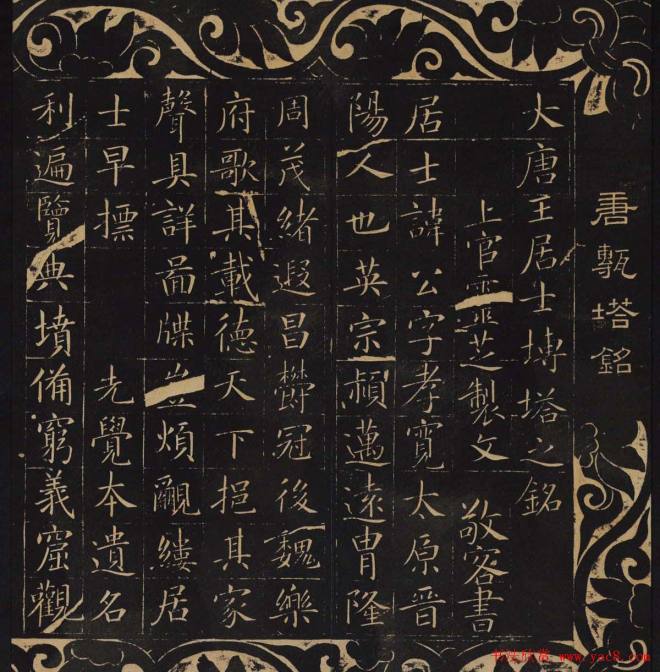 唐甎塔銘
大唐王居士塼塔之銘
上官靈芝製文 敬客書
居士諱公字孝寬太原晉
陽人也英宗穎邁遠胄隆
周茂緒遐昌鬱冠後魏樂
府歌其載德天下挹其家
聲具詳啚牒豈煩覶縷居
士早標 先覺本遺名
利遍覽典墳備窮義窟觀
书法欣赏 www.yac8.com